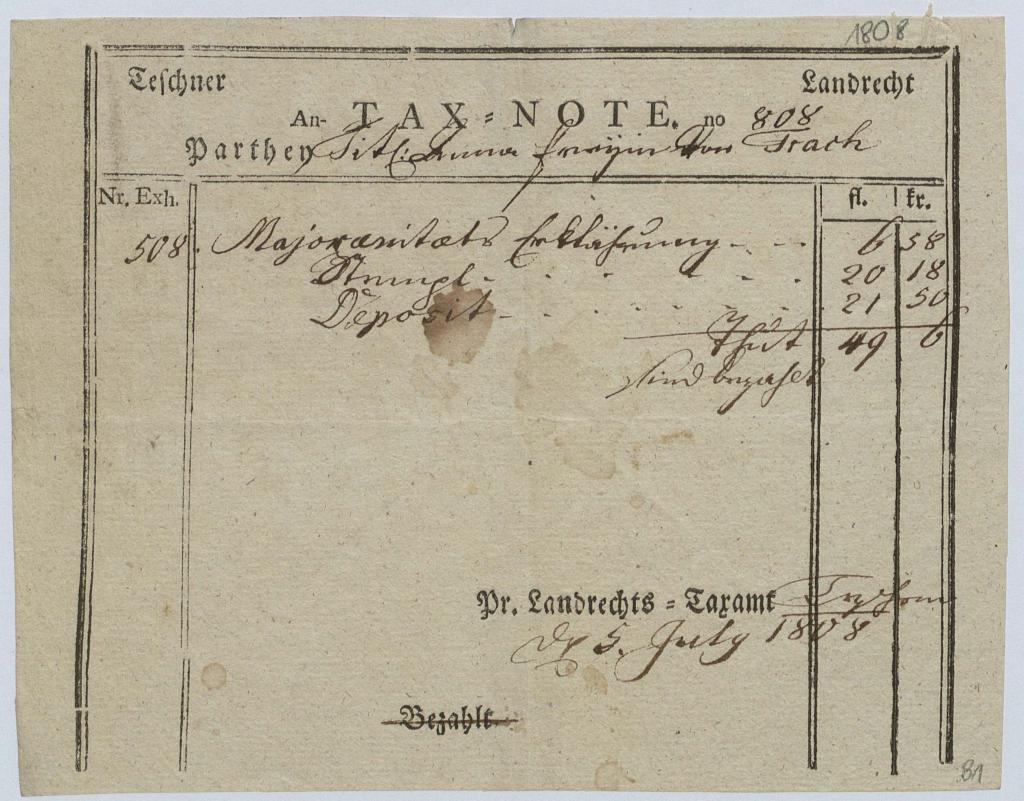 1808
Teſchner Landrecht
An- TAX=NOTE. no 808
Parthey Titl: Anna Freyin von Trach
Nr. Exh. fl. kr.
508. Majorænitæts Erklährung - - - 6 58
Stempl - - - - - - 20 18
Deposit - - - - - - 21 50
Thut 49 6
sind bezahlt
Pr. Landrechts = Taxamt Teschen
5. July 1808
Bezahlt.
81